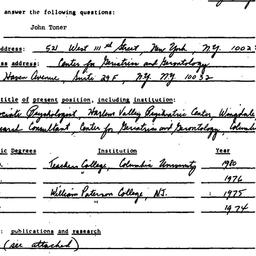 answer the following questions:
John Toner
address: 521 West 111th Street, New York, N.Y. 1002
ss address: Center for Geriatrics and Gerontology
Haven Avenue, Suite 29F, N.Y. N.Y. 10032
title of present position, including institution:
ociate Psychologist, Harlem Valley Psychiatric Center, Wingdale
earch Consultant, Center for Geriatrics and Gerontology, Columbia
ic Degrees Institution Year
Teachers College, Columbia University 1980
1976
William Paterson College, N.J. 1975
1974
: publications and research
(see attached)